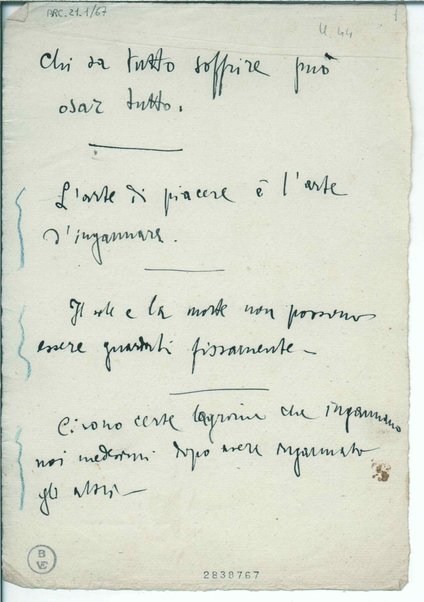 ARC.21.1/67
44
Chi sa tutto soffrire può
osar tutto.
L'arte di piacere è l'arte
d'ingannare.
Il sole e la morte non possono
essere guardati fissamente—
Ci sono certe lagrime che ingannano
noi medesimi dopo avere ingannato
gli altri—
B
VE
2838767